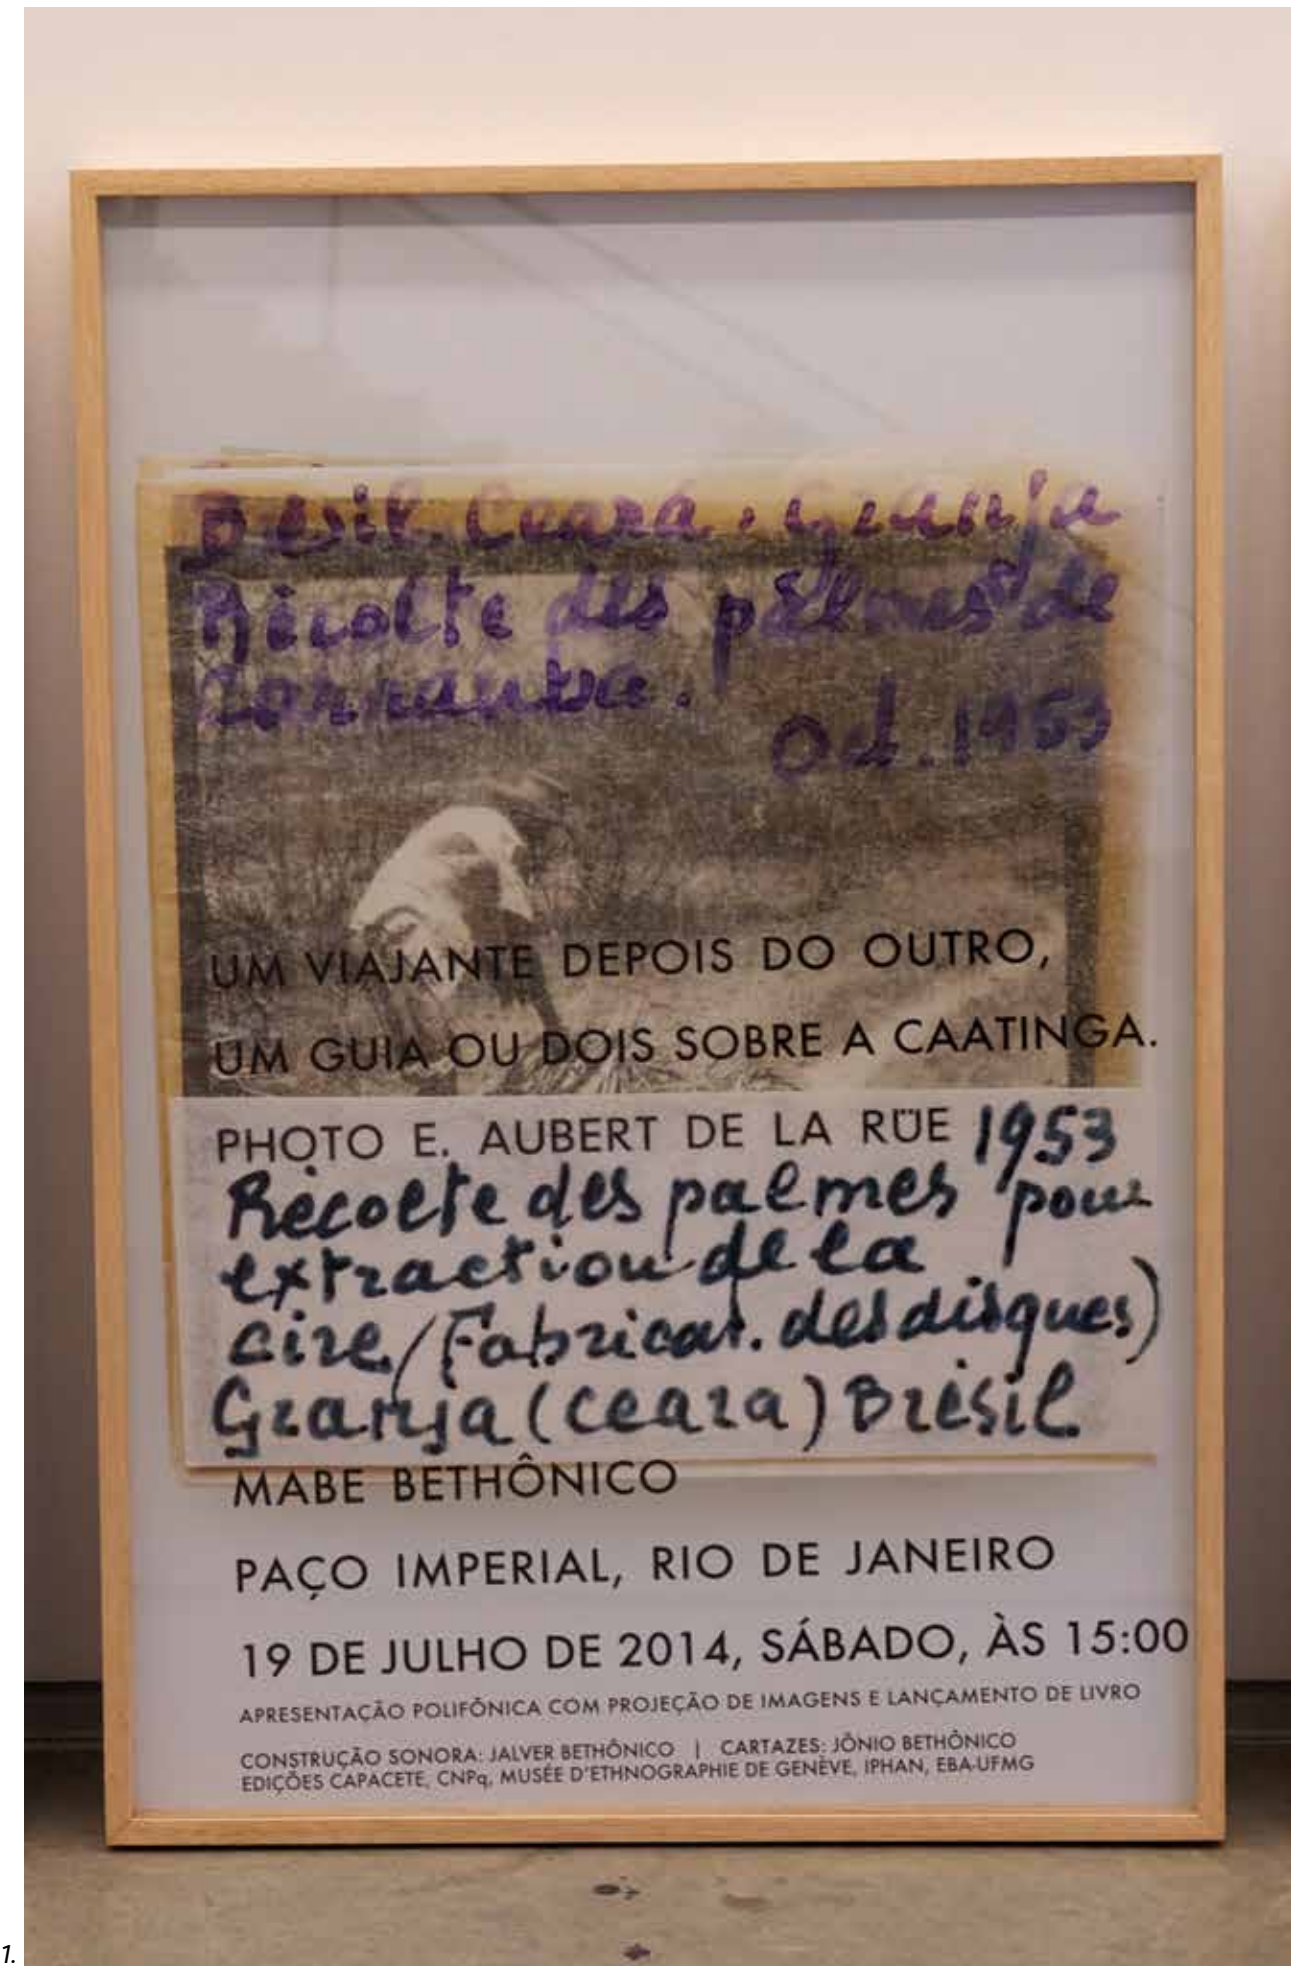 Brésil. Ceará. Granja
Récolte des palmes de
Oct. 1953
UM VIAJANTE DEPOIS DO OUTRO,
UM GUIA OU DOIS SOBRE A CAATINGA.
PHOTO E. AUBERT DE LA RÜE 1953
Récolte des palmes pour
extraction de la
cire (Fabricat. des disques)
Granja (Ceara) Brésil
MABE BETHÔNICO
PAÇO IMPERIAL, RIO DE JANEIRO
19 DE JULHO DE 2014, SÁBADO, ÀS 15:00
APRESENTAÇÃO POLIFÔNICA COM PROJEÇÃO DE IMAGENS E LANÇAMENTO DE LIVRO
CONSTRUÇÃO SONORA: JALVER BETHÔNICO | CARTAZES: JÔNIO BETHÔNICO
EDIÇÕES CAPACETE, CNPq, MUSÉE D'ETHNOGRAPHIE DE GENÈVE, IPHAN, EBA-UFMG
1.